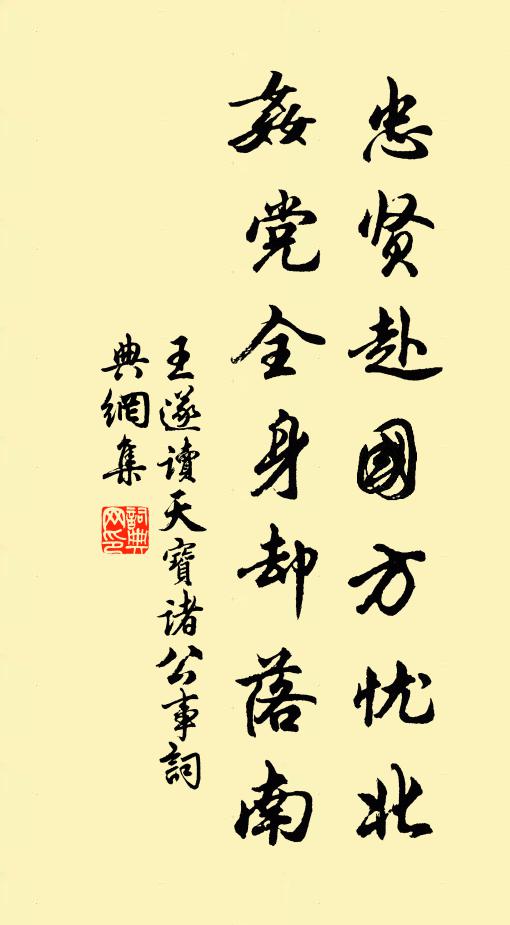 忠贤赴國方忧北
姦党全身却落南
王遂读天寶诸公事詞
典網集
詞典网印